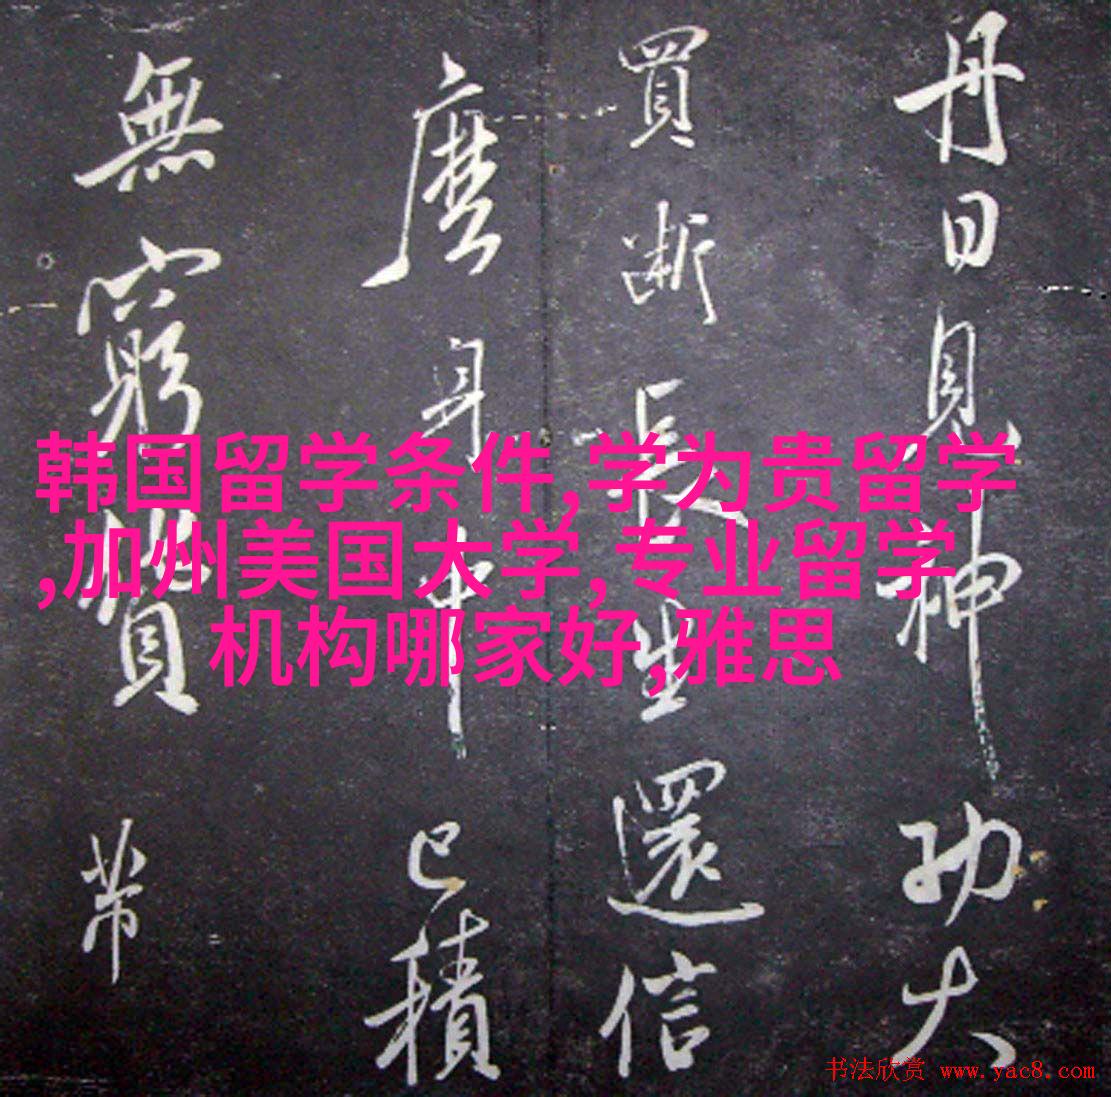 丹日見神功大
買斷長生還信
麼身中已積
無窮
韩国留学条件,学为贵留学
,加州美国大学,专业留学
机构哪家好,雅思
书法欣赏 www.yac8.com